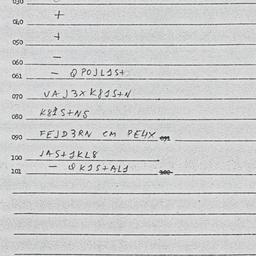 030
040 +
050 +
060 -
061 - QPOJLIS+
070 VAJ3XK81S+N
080 K81S+NS
090 FEJD3RN CM PE4X
100 JAS+IKL8
101 - QKIS+AL1